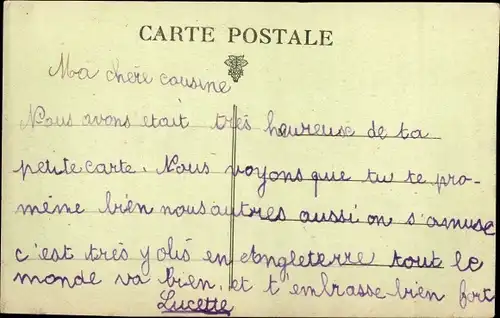 CARTE POSTALE
Ma chère cousine
Nous avons etait très heureuse de ta
petite carte. Nous voyons que tu te pro-
mène bien nous autres aussi on s'amuse
c'est très yolis en Angleterre tout le
monde va bien, et t'embrasse bien fort
Lucette